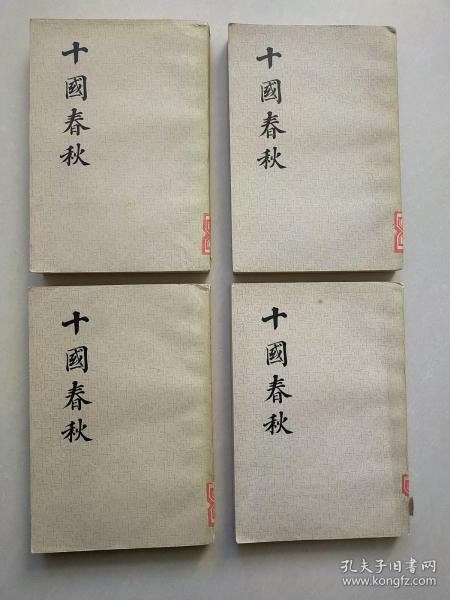 十國春秋
十國春秋
十國春秋
十國春秋
孔夫子旧书网
www.kongfz.com